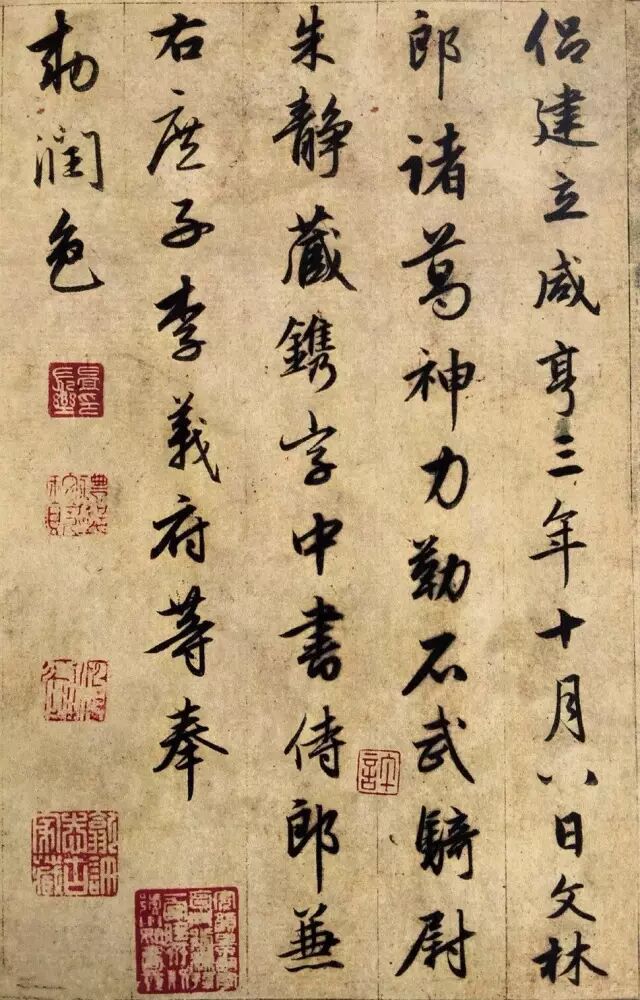 侣建立咸亨三年十月八日文林
郎诸葛神力勒石武骑尉
朱静藏鐫字中書侍郎兼
右庶子李義府等奉
勑润色